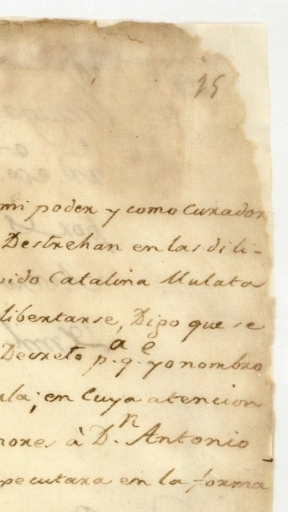 15
mi poder y como Curador
Destrehan en las dili-
pido Catalina Mulata
libertarse, Digo que se
Decreto p.a q.e yo nombro
ula; en Cuya atencion
nores à D.n Antonio
pecutara en la forma